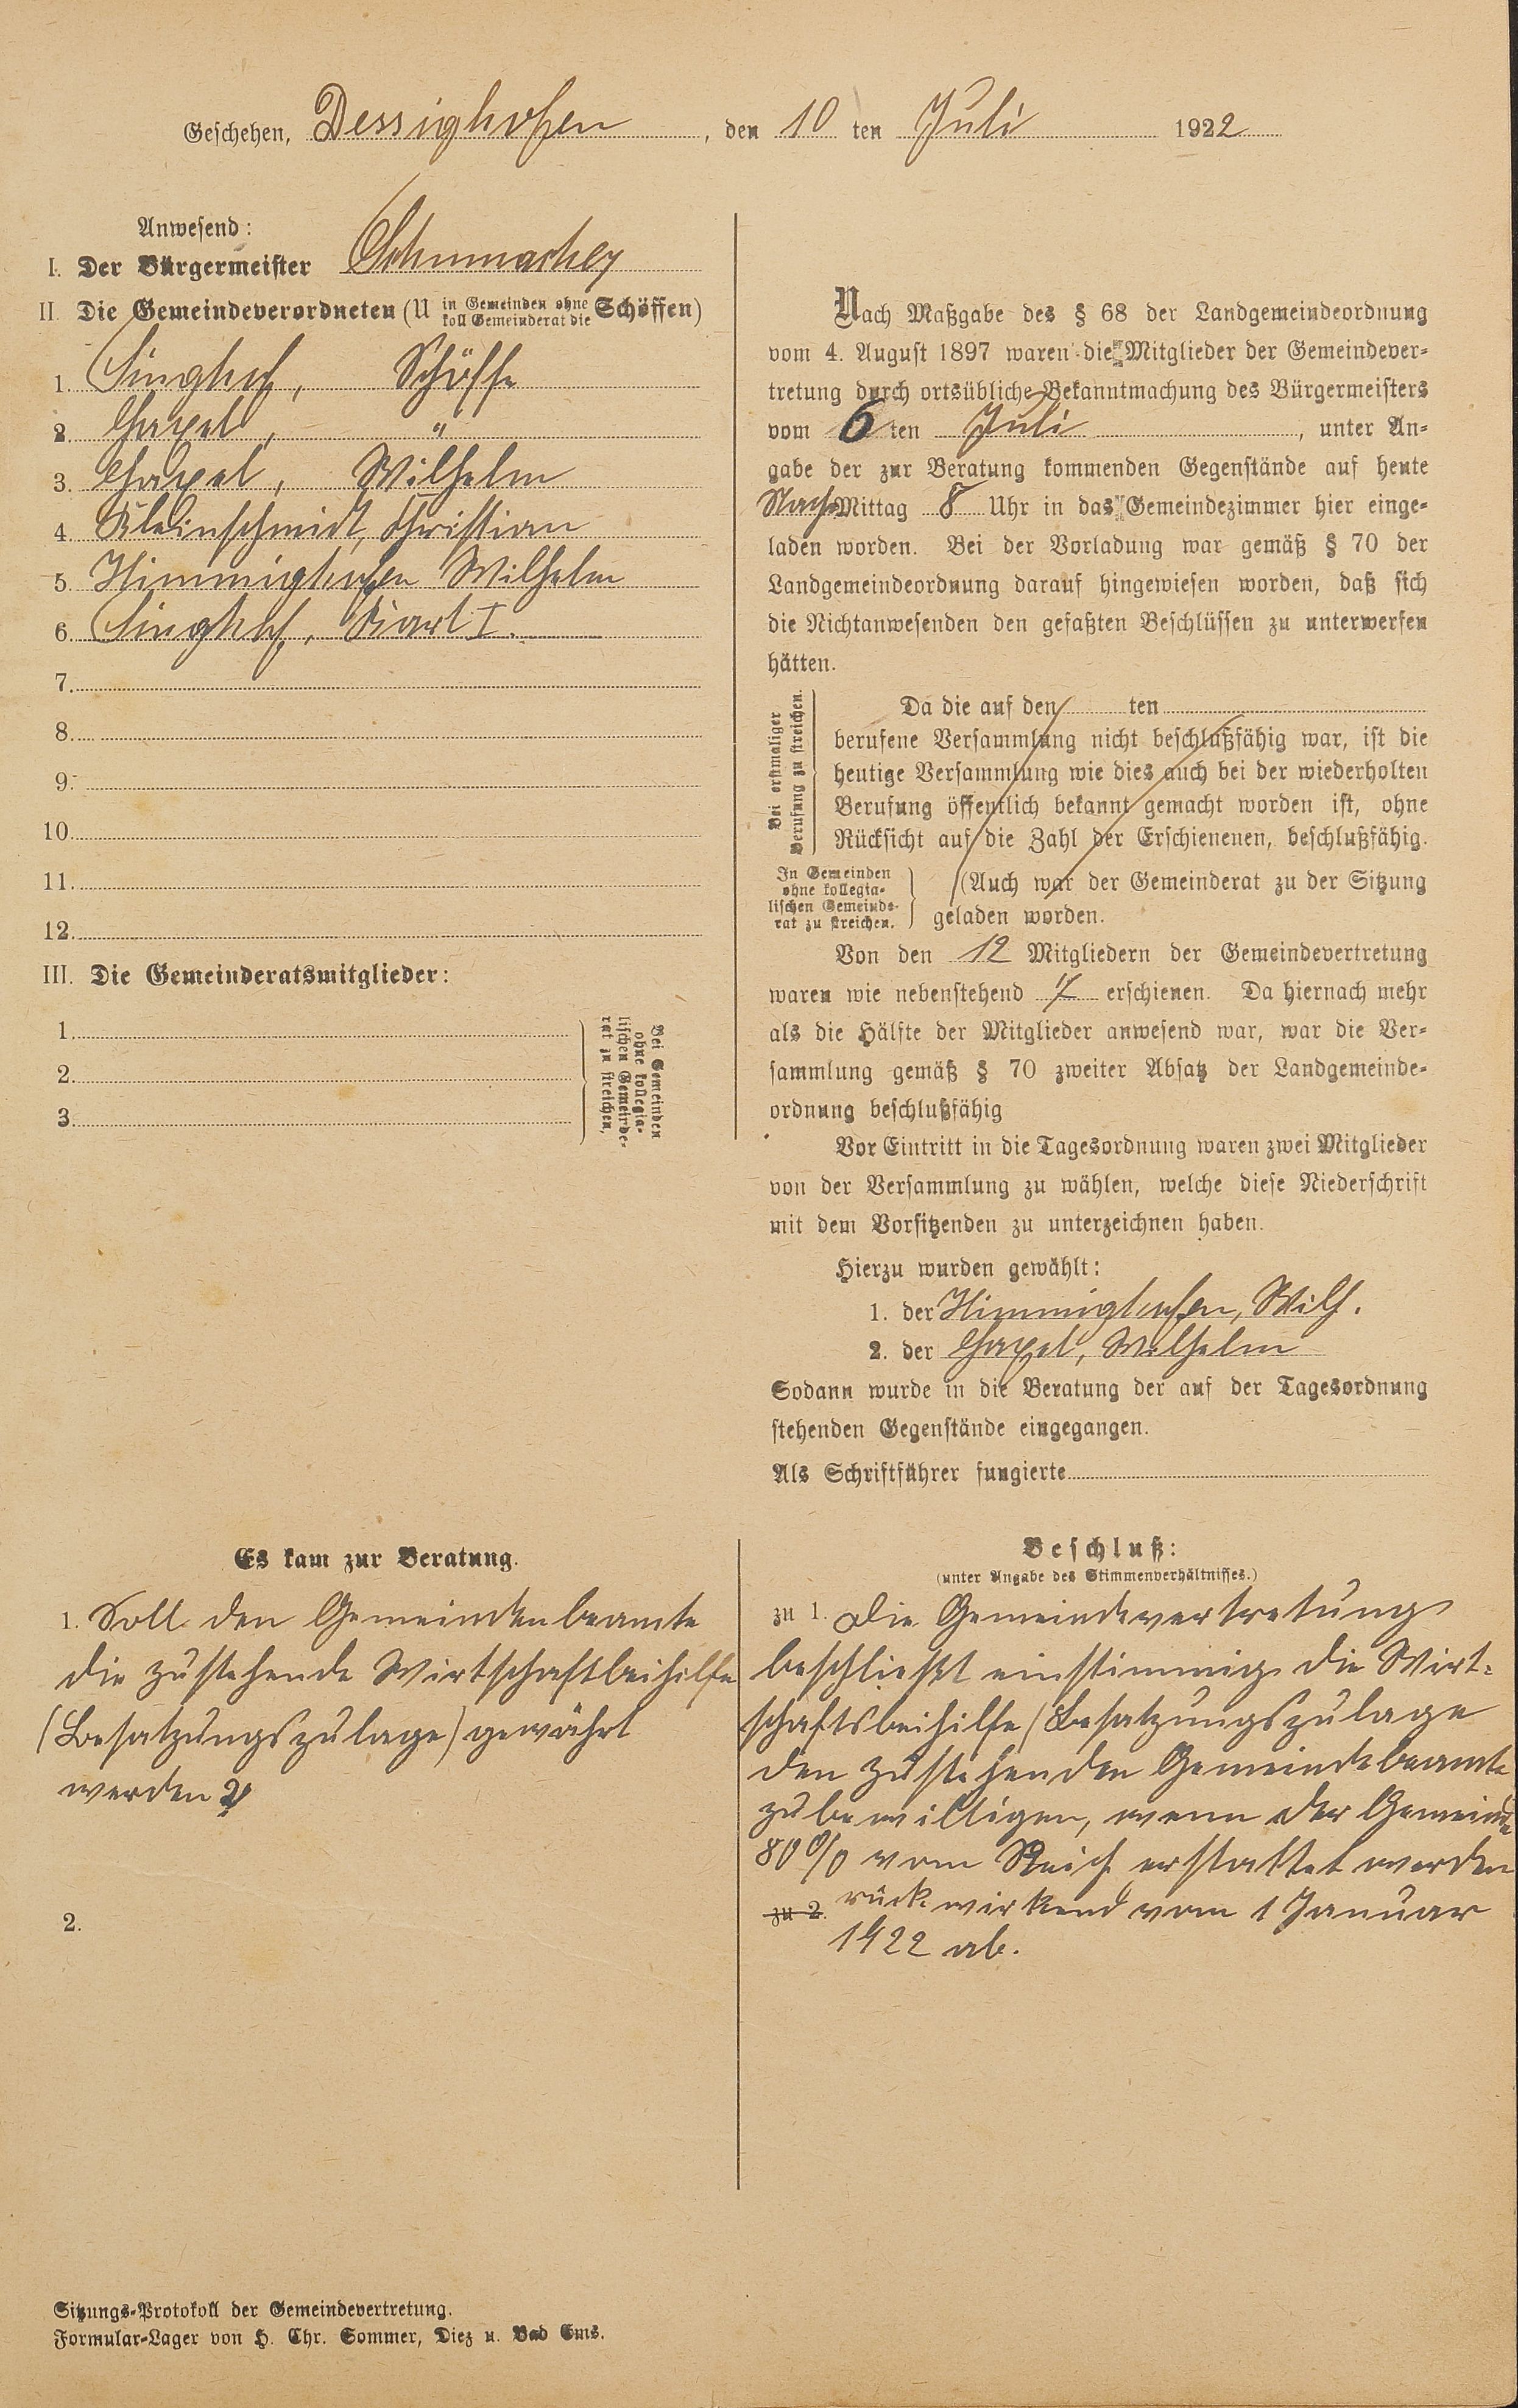 Geschehen, Dessighofen, den 10 ten Juli 1922
Anwesend:
I. Der Bürgermeister Schumacher
II. Die Gemeindeverordneten (U in Gemeinden ohne koll Gemeinderat die Schöffen)
1. Singhof, Schöffe
2. Gapel, "
3. Gapel, Wilhelm
4. Kleinschmidt, Christian
5. Himmighofen Wilhelm
6. Singhof, Karl I.
7.
8.
9.
10.
11.
12.
III. Die Gemeinderatsmitglieder:
1.
2.
3.
Bei Gemeinden
ohne kollegia-
lischen Gemeinde-
rat zu streichen,
Nach Maßgabe des § 68 der Landgemeindeordnung
vom 4. August 1897 waren die Mitglieder der Gemeindever-
tretung durch ortsübliche Bekanntmachung des Bürgermeisters
vom 6 ten Juli, unter An-
gabe der zur Beratung kommenden Gegenstände auf heute
Nach Mittag 8 Uhr in das Gemeindezimmer hier einge-
laden worden. Bei der Vorladung war gemäß § 70 der
Landgemeindeordnung darauf hingewiesen worden, daß sich
die Nichtanwesenden den gefaßten Beschlüssen zu unterwerfen
hätten.
Bei erstmaliger
Berufung zu streichen.
Da die auf den ten
berufene Versammlung nicht beschlußfähig war, ist die
heutige Versammlung wie dies auch bei der wiederholten
Berufung öffentlich bekannt gemacht worden ist, ohne
Rücksicht auf die Zahl der Erschienenen, beschlußfähig.
In Gemeinden
ohne kollegia-
lischen Gemeinde-
rat zu streichen.
(Auch war der Gemeinderat zu der Sitzung
geladen worden.
Von den 12 Mitgliedern der Gemeindevertretung
waren wie nebenstehend 7 erschienen. Da hiernach mehr
als die Hälfte der Mitglieder anwesend war, war die Ver-
sammlung gemäß § 70 zweiter Absatz der Landgemeinde-
ordnung beschlußfähig
Vor Eintritt in die Tagesordnung waren zwei Mitglieder
von der Versammlung zu wählen, welche diese Niederschrift
mit dem Vorsitzenden zu unterzeichnen haben.
Hierzu wurden gewählt:
1. der Himmighofen, Wilh.
2. der Gapel, Wilhelm
Sodann wurde in die Beratung der auf der Tagesordnung
stehenden Gegenstände eingegangen.
Als Schriftführer fungierte
Es kam zur Beratung.
1. Soll den Gemeindenbeamte
die zustehende Wirtschaftbeihilfe
(Besatzungszulage) gewährt
werden ?
2.
Beschluß:
(unter Angabe des Stimmenverhältnisses.)
zu 1. Die Gemeindevertretung
beschließt einstimmig die Wirt-
schaftsbeihilfe (Besatzungszulage
den zustehenden Gemeindebeamte
zu bewilligen, wenn der Gemeinde
80 % vom Reich erstattet werden
zu 2. rückwirkend vom 1 Januar
1922 ab.
Sitzungs-Protokoll der Gemeindevertretung.
Formular-Lager von H. Chr. Sommer, Diez u. Bad Ems.